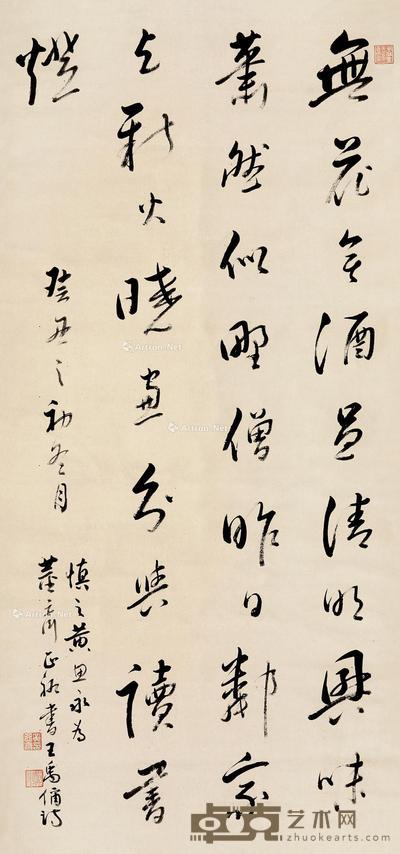 無花無酒過清明興味
蕭然似野僧昨日鄰家
乞新火曉窗分與讀書
燈
癸丑之初冬月
慎之黃思永為
書王禹偁詩
Artron.Net
Artron.Net
Artron.Net
Artron.Net
卓克艺术网
zhuokearts.com